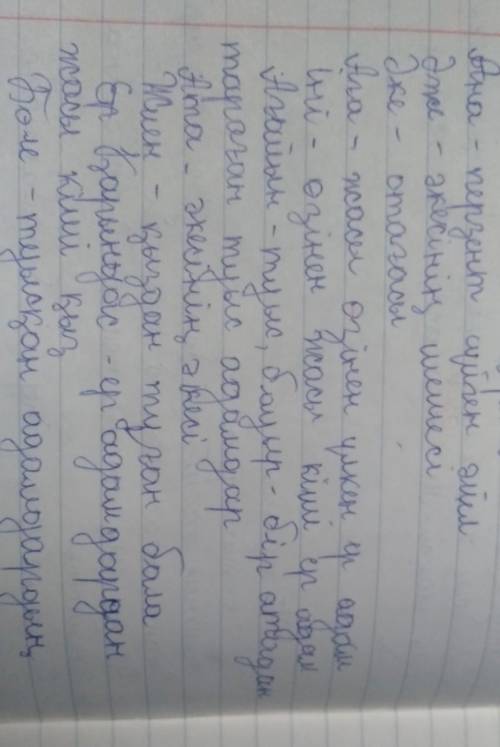 Ана - перзент сүйген әйел
Әже - әкесінің шешесі
Әке - отағасы
Аға - жасы өзінен үлкен ер адам
Іні - өзінен жасы кіші ер адам
Ағайын - туыс, бауыр - бір атадан
тараған туыс адамдар
Ата - әкесінің әкесі
Жиен - қыздан туған бала
Қарындас - ер адамдардан
жасы кіші қыз
Бөле - туысқан адамдардың